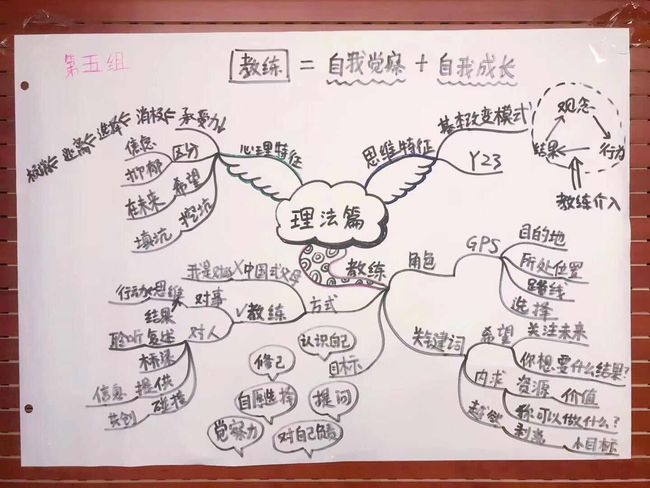 第五组
教练 = 自我觉察 + 自我成长
心理特征
承受力↓
消极
选择
逃离
区分
信息
抑郁
希望
在未来
挖坑
填坑
思维特征
基本改变模式
Y23
观念
行为
结果
教练介入
理法篇
教练
角色
GPS
目的地
所处位置
路线
选择
关键词
希望
关注未来
你想要什么结果?
内求
资源
价值
你可以做什么?
超越
小目标
方式
X中国式父母
我是对的
√教练
对事
行动
思维
结果
对人
聆听
复述
提供
信息
碰撞
共创
目标
认识自己
修己
自愿选择
提问
觉察力
对自己负责